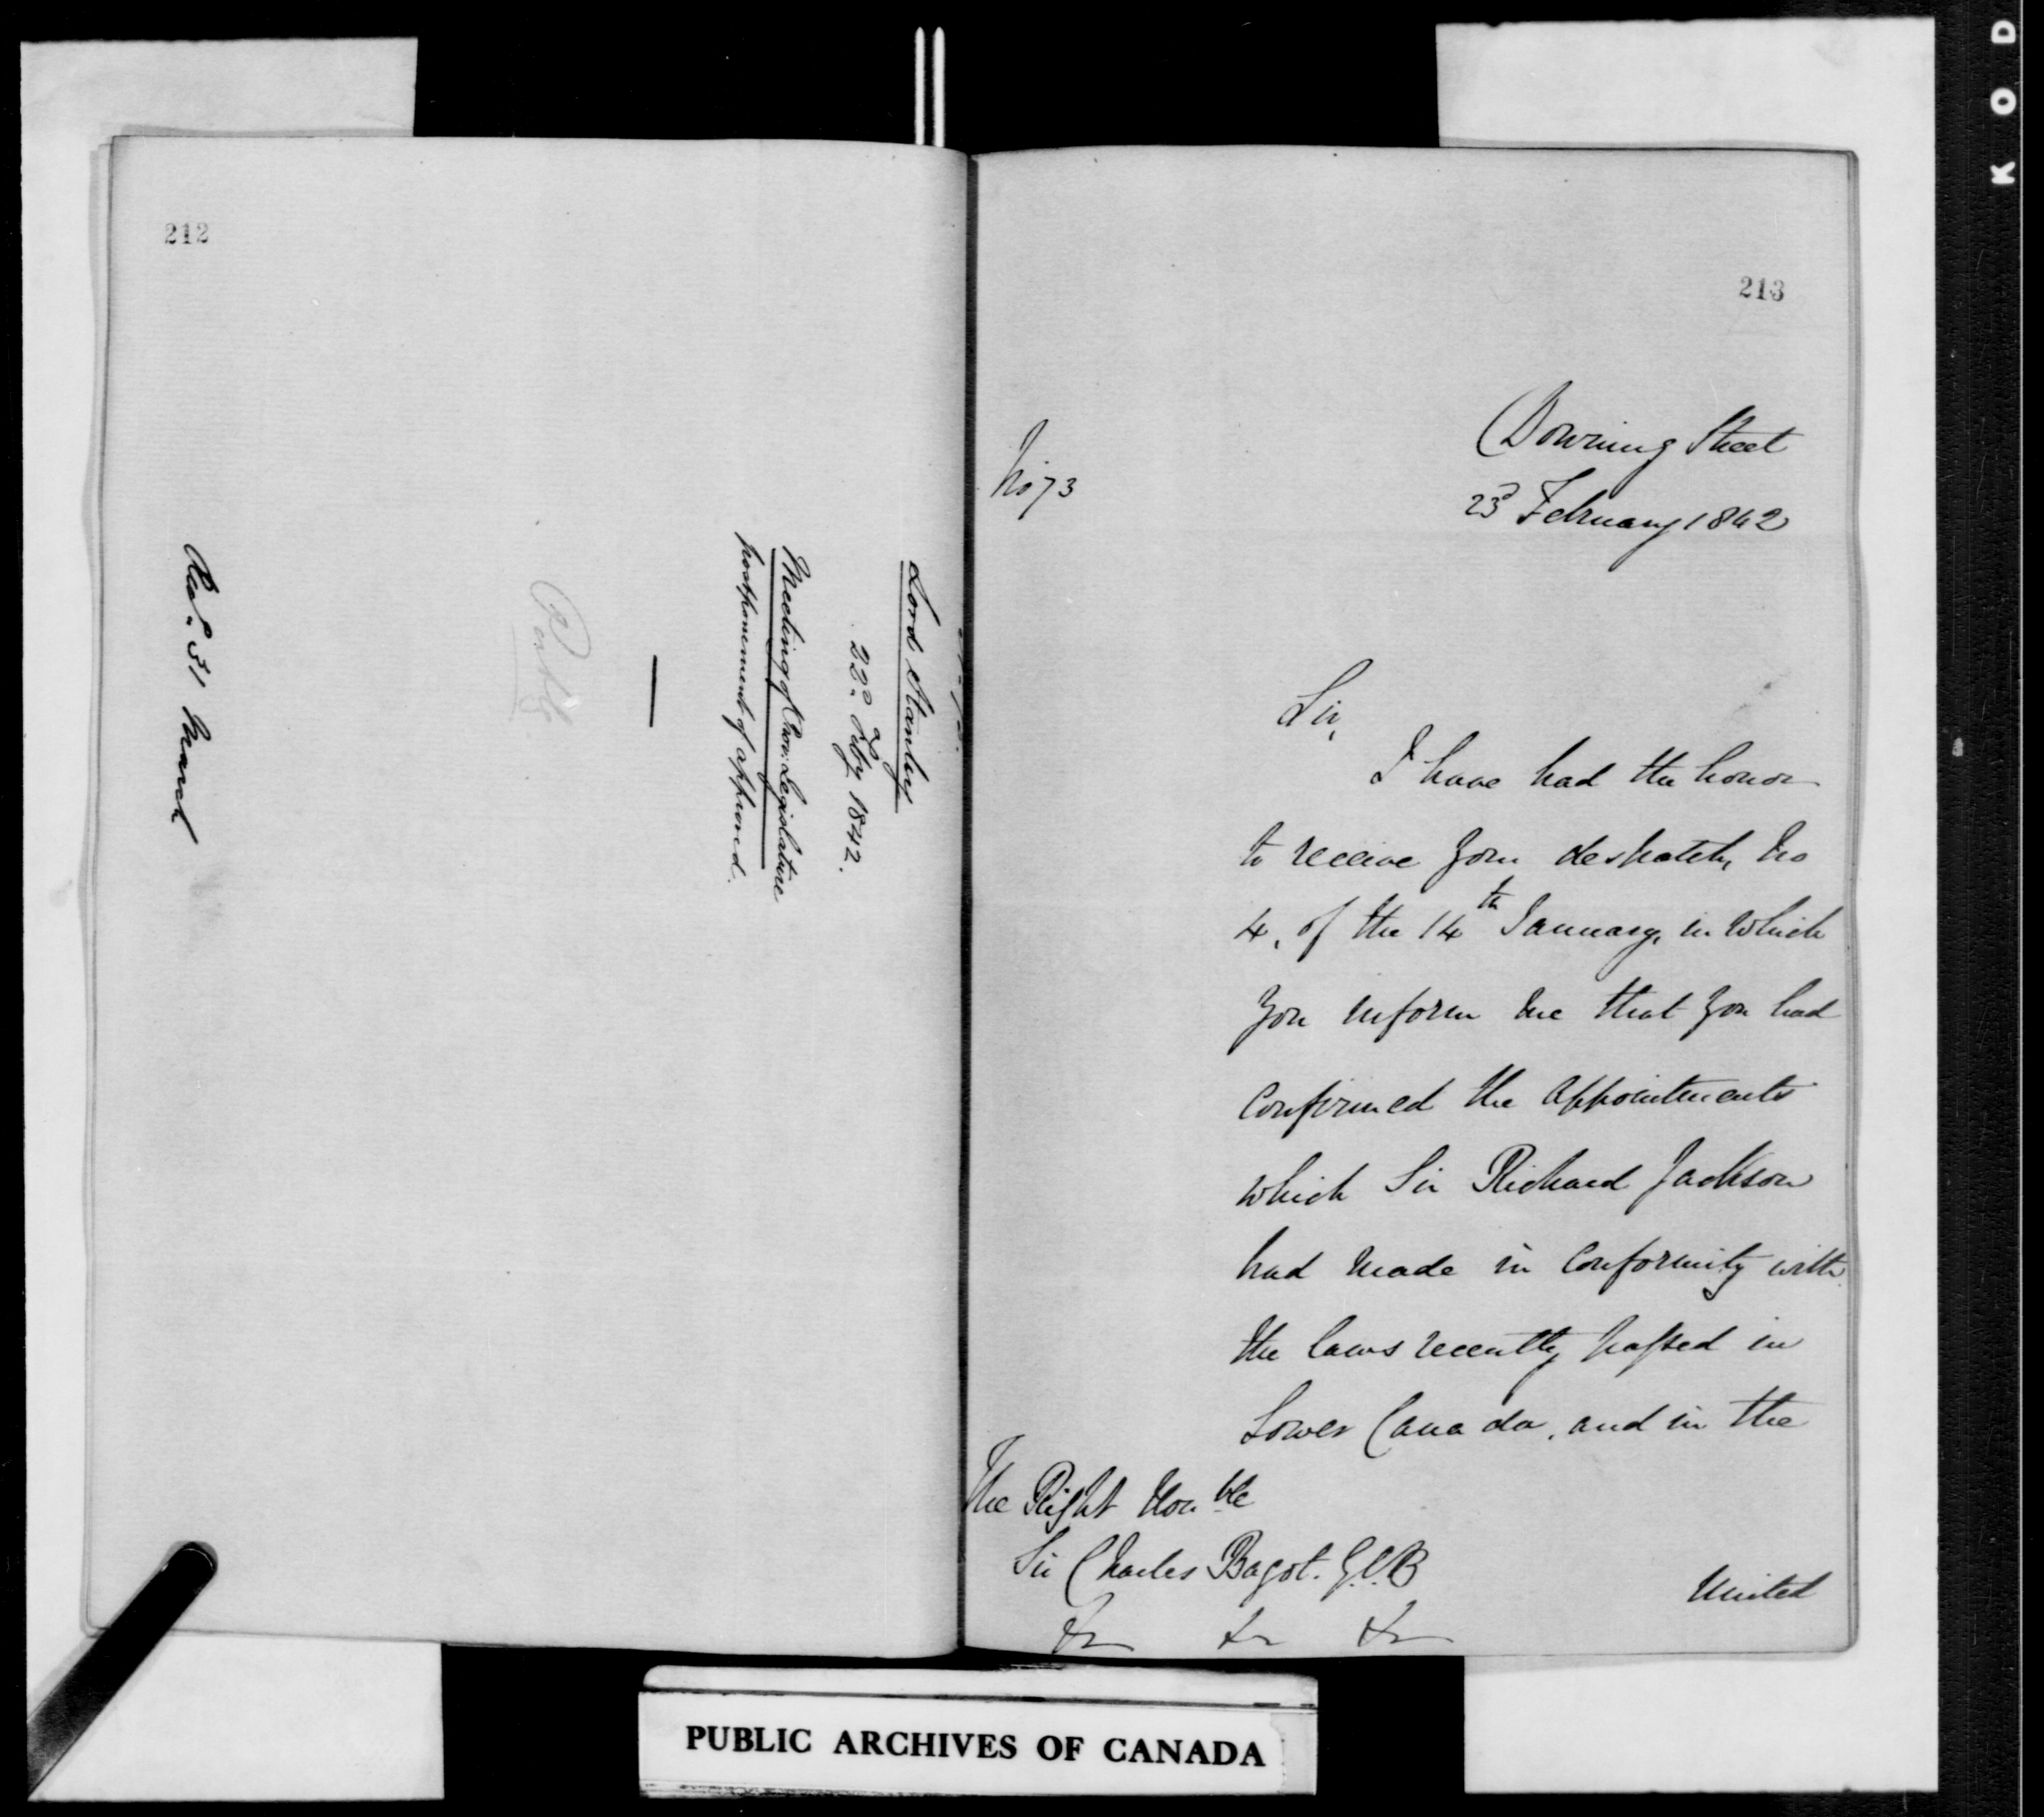 212
Lord Stanley
22d Feby 1842.
Meeting of Prov: Legislature
postponement of approved.
Recd. 31 March
213
No 73
Downing Street
23d February 1842
Sir,
I have had the honor
to receive your despatch, No
4, of the 14th January, in which
you inform me that you had
confirmed the appointments
which Sir Richard Jackson
had made in conformity with
the laws recently passed in
Lower Canada, and in the
The Right Honble
Sir Charles Bagot. G.C.B
&c &c &c
United
PUBLIC ARCHIVES OF CANADA
KOD